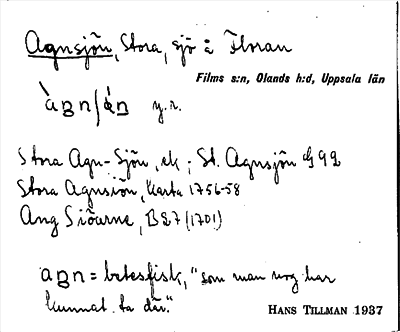 Agnsjön, Stora, sjö å Floran
Films s:n, Olands h:d, Uppsala län
y.r.
Stora Agn-Sjön, ek ; St. Agnsjön G 92
Stora Agnsiön, Karta 1756-58
Ang Siöarne, B27 (1701)
= betesfisk, "som man nog har
kunnat ta där."
HANS TILLMAN 1937